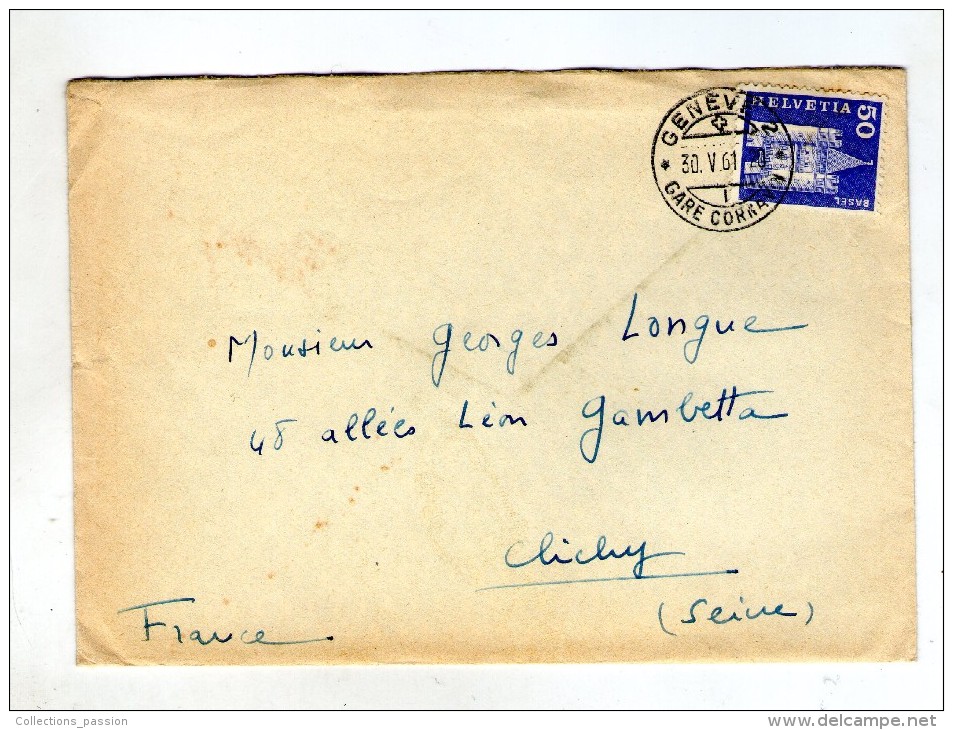 HELVETIA 50
BASEL
GENÈVE 2
30.V.61
GARE CORNAVIN
Monsieur Georges Longue
48 allées Léon Gambetta
Clichy
(Seine)
France
Collections_passion
www.delcampe.net